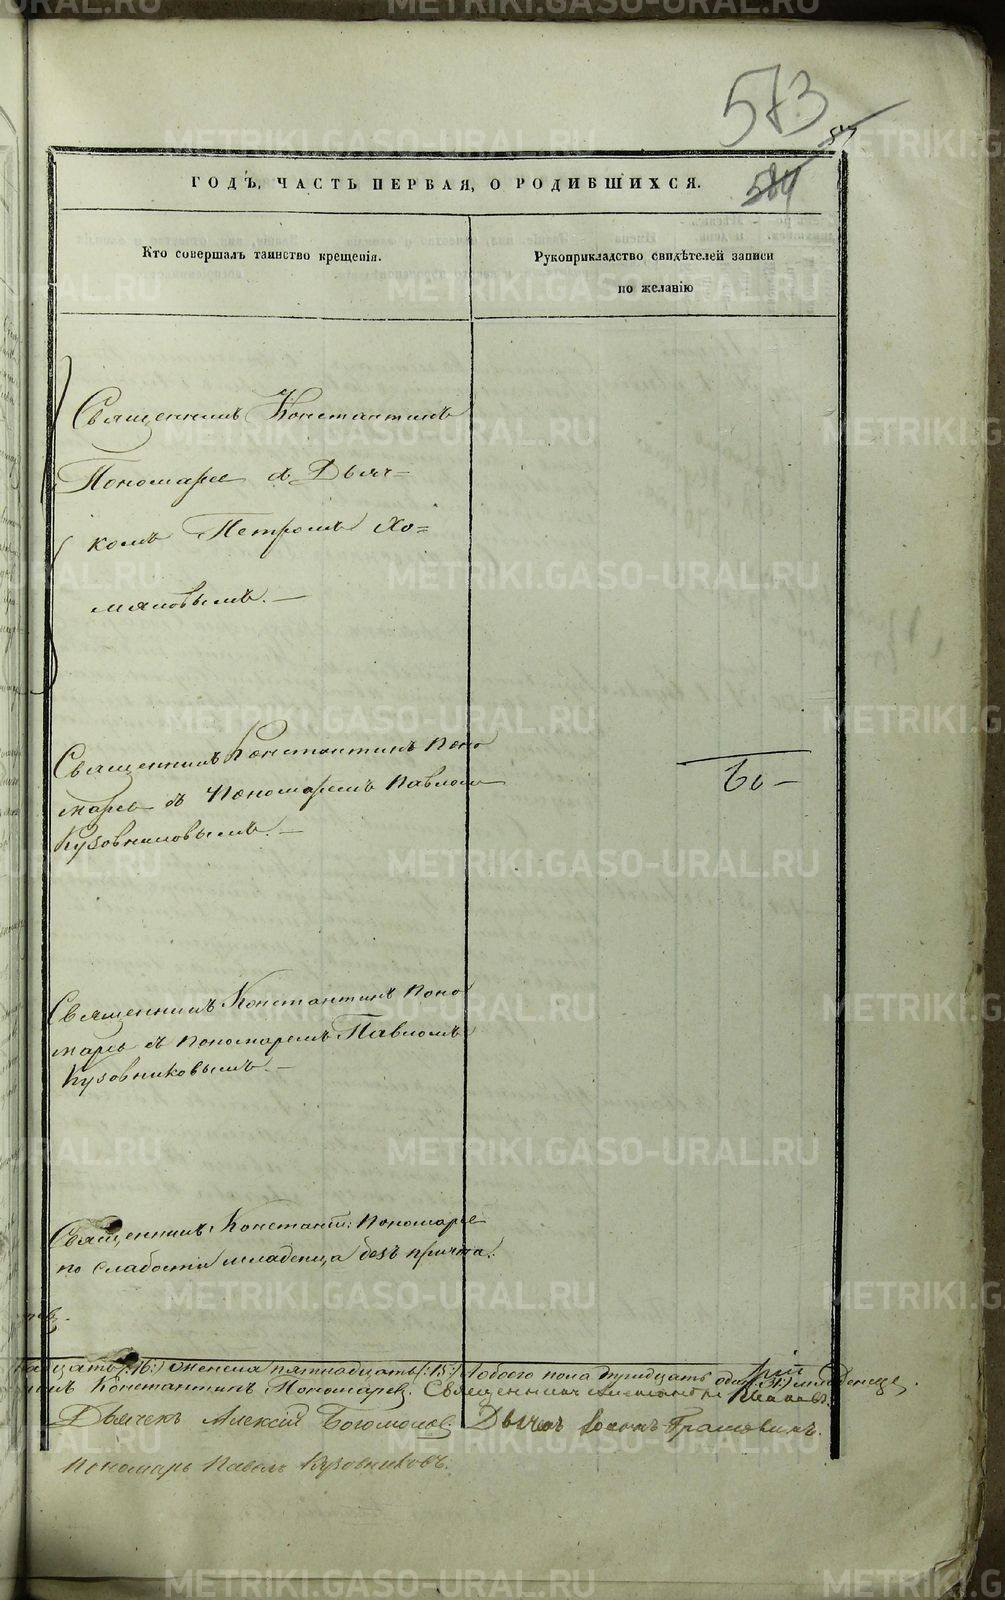 573
584
ГОДЪ, ЧАСТЬ ПЕРВАЯ, О РОДИВШИХСЯ.
Кто совершалъ таинство крещенія.
Рукоприкладство свидѣтелей записи
по желанію
Священникъ Константинъ
Пономаревъ съ Дьяч=
комъ Петромъ Хо=
мяковымъ.
Священникъ Константинъ Поно
маревъ съ Пономаремъ Павломъ
Кузовниковымъ.
Священникъ Константинъ Поно
маревъ съ Пономаремъ Павломъ
Кузовниковымъ.
Священникъ Константинъ Пономаревъ
по слабости младенца безъ причта.
надцать (:16:) Женска пятнадцать (:15:) Обоего пола тридцать одинъ (:31:) младенецъ.
Константинъ Пономаревъ. Священникъ
Дьячекъ Алексій Богомоловъ. Дьячекъ
Пономарь Павелъ Кузовниковъ.
METRIKI.GASO-URAL.RU